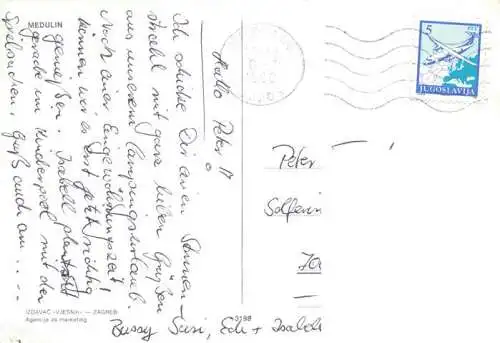 MEDULIN
Hallo Peter!!
Ich schicke Dir einen Sonnen-
strahl mit ganz lieben Grüßen
aus unserem Campingurlaub.
Nach einer Eingewöhnungszeit
können wir es erst jetzt richtig
genießen. Isabell plantscht
gerade im Kinderpool mit der
Gruß auch an ....
Bussy Susi, Edi + Isabell
Peter
Solferin
5
JUGOSLAVIJA
IZDAVAČ »VJESNIK« — ZAGREB
Agencija za marketing
3198